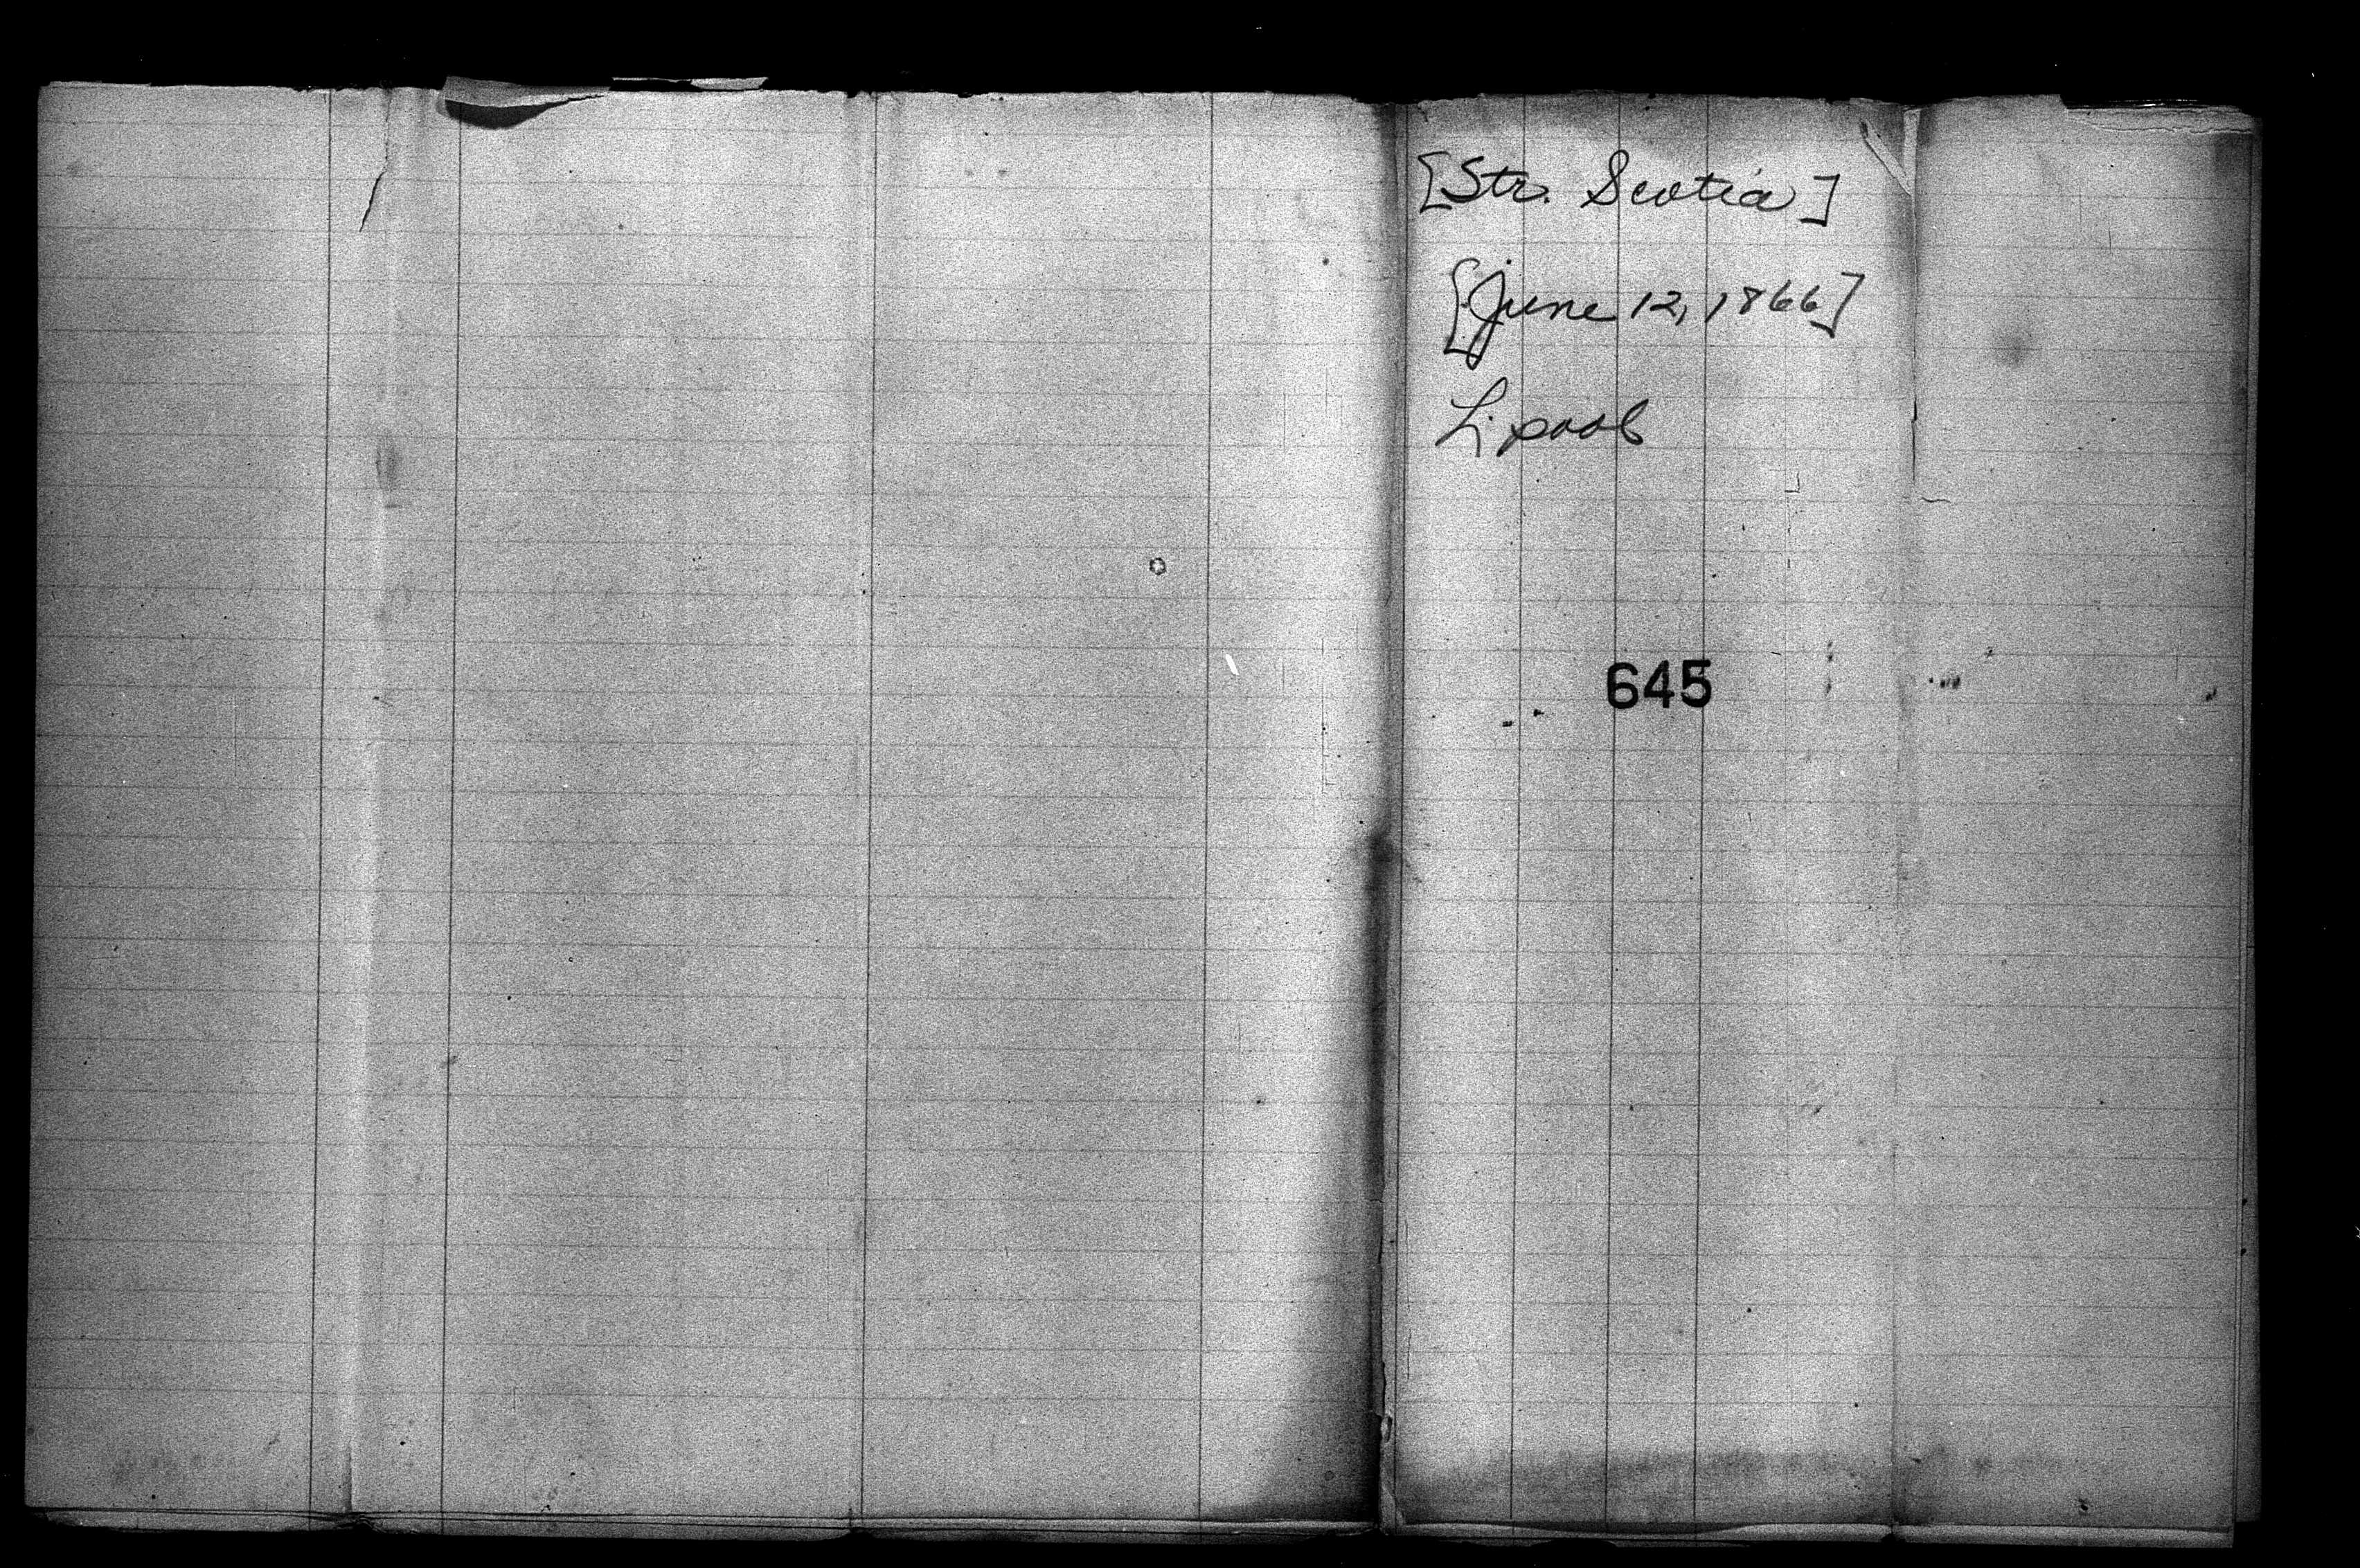 [Str. Scotia]
[June 12, 1866]
Lipool
645